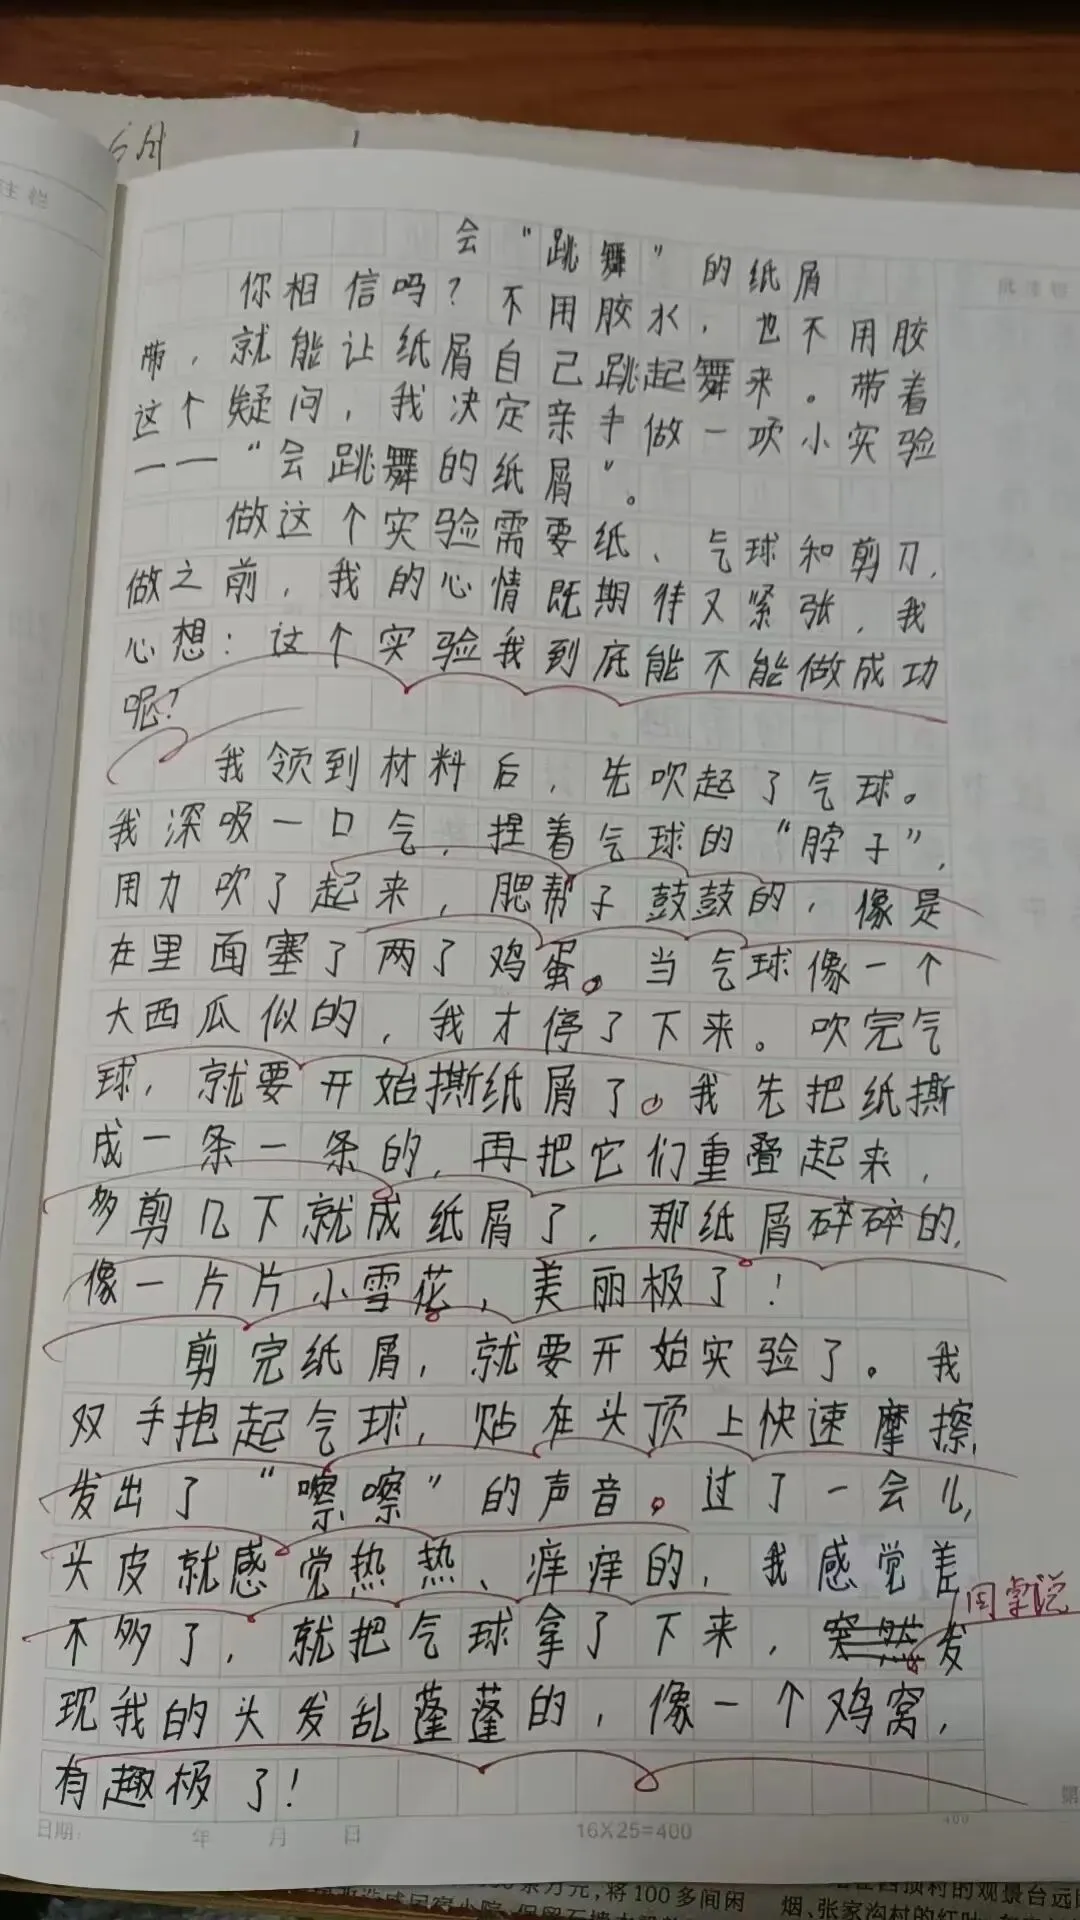 注栏
会“跳舞”的纸屑
批注栏
你相信吗？不用胶水，也不用胶
带，就能让纸屑自己跳起舞来。带着
这个疑问，我决定亲手做一项小实验
——“会跳舞的纸屑”。
做这个实验需要纸、气球和剪刀，
做之前，我的心情既期待又紧张，我
心想：这个实验我到底能不能做成功
呢？
我领到材料后，先吹起了气球。
我深吸一口气，捏着气球的“脖子”，
用力吹了起来，腮帮子鼓鼓的，像是
在里面塞了两了鸡蛋。当气球像一个
大西瓜似的，我才停了下来。吹完气
球，就要开始撕纸屑了。我先把纸撕
成一条一条的，再把它们重叠起来，
多剪几下就成纸屑了，那纸屑碎碎的，
像一片片小雪花，美丽极了！
剪完纸屑，就要开始实验了。我
双手抱起气球，贴在头顶上快速摩擦，
发出了“嚓嚓”的声音。过了一会儿，
头皮就感觉热热、痒痒的，我感觉差
不多了，就把气球拿了下来，突然发
现我的头发乱蓬蓬的，像一个鸡窝，
有趣极了！
日期： 年 月 日 16X25=400 400 第
万元，将100多间闲
烟、张家沟村的红叶